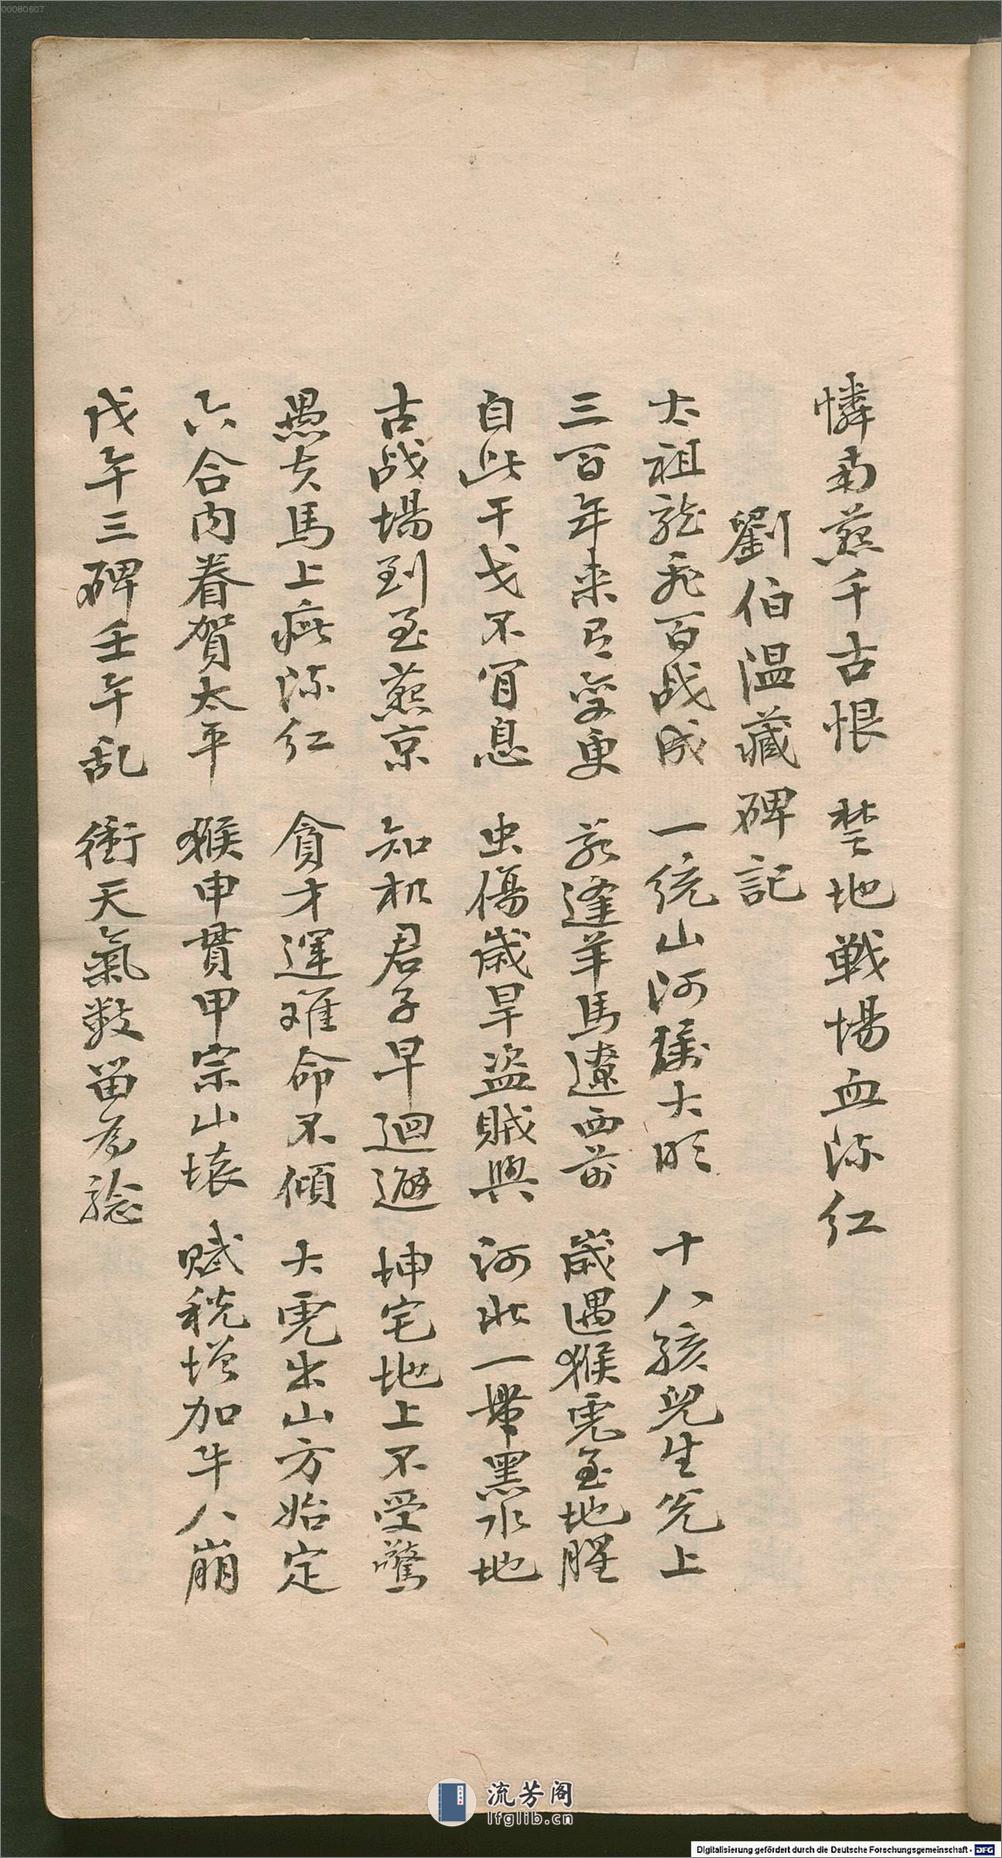 00080607
憐南燕千古恨 楚地戰場血流紅
劉伯温藏碑記
太祖龍飛百战成 一統山河獲大明 十八孩児生児上
三百年来有变更 若逢羊馬遼西前 歲遇猴虎至地腥
自此干戈不肎息 虫傷歲旱盗賊興 河北一帶黑水地
古战場到至燕京 知机君子早迴避 坤宅地上不受驚
愚夫馬上疵流红 貪才運难命不傾 大虎出山方始定
六合内眷賀太平 猴申貫甲宗山壊 赋税增加牛八崩
戊午三碑壬午乱 衝天氣数留为驗
流芳阁
lfglib.cn
Digitalisierung gefördert durch die Deutsche Forschungsgemeinschaft - DFG